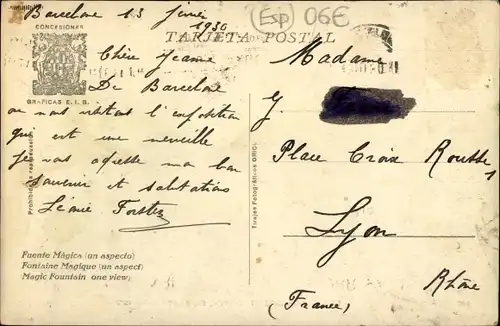 Barcelone 13 Janvier
1930
(Esp) 06€
CONCESIONES
TARJETA POSTAL
GRAFICAS E.I.B.
Chère Jeanne
De Barcelone
ou nous visitant l'exposition
qui est une merveille
je vous adresse mon bon
souvenir et salutations
Léonie
Prohibida la reproducción
Fuente Mágica (un aspecto)
Fontaine Magique (un aspect)
Magic Fountain one view)
Tirajes Fotográficos ORIOL
Madame
J.
Place Croix Rousse 1
Lyon
Rhône
(France)